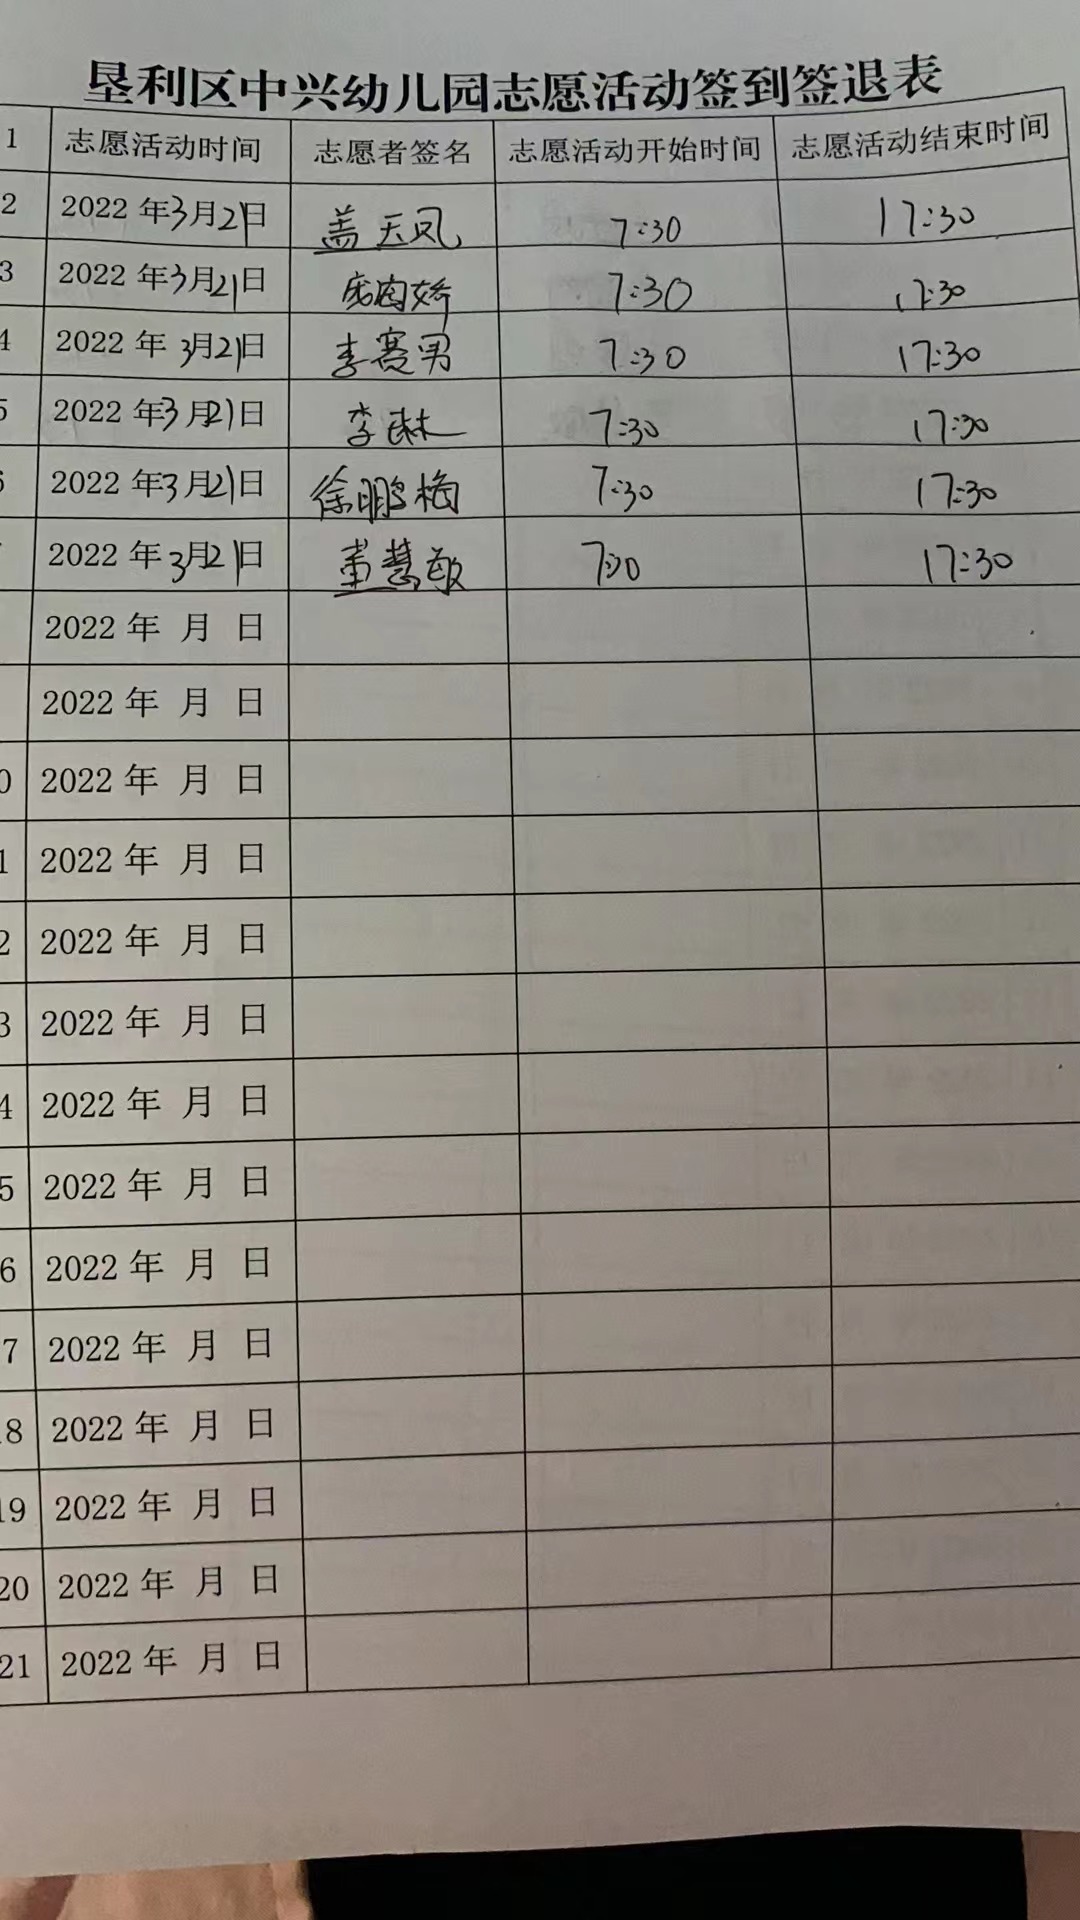 垦利区中兴幼儿园志愿活动签到签退表
1 志愿活动时间 志愿者签名 志愿活动开始时间 志愿活动结束时间
2 2022 年3月21日 盖天凤 7:30 17:30
3 2022 年3月21日 7:30 17:30
4 2022 年 3月21日 李赛男 7:30 17:30
5 2022 年3月21日 李琳 7:30 17:30
6 2022 年3月21日 徐鹏梅 7:30 17:30
2022 年 3月21日 董慧敏 7:30 17:30
2022 年 月 日
2022 年 月 日
0 2022 年 月 日
1 2022 年 月 日
2 2022 年 月 日
3 2022 年 月 日
4 2022 年 月 日
5 2022 年 月 日
6 2022 年 月 日
7 2022 年 月 日
18 2022 年 月 日
19 2022 年 月 日
20 2022 年 月 日
21 2022 年 月 日